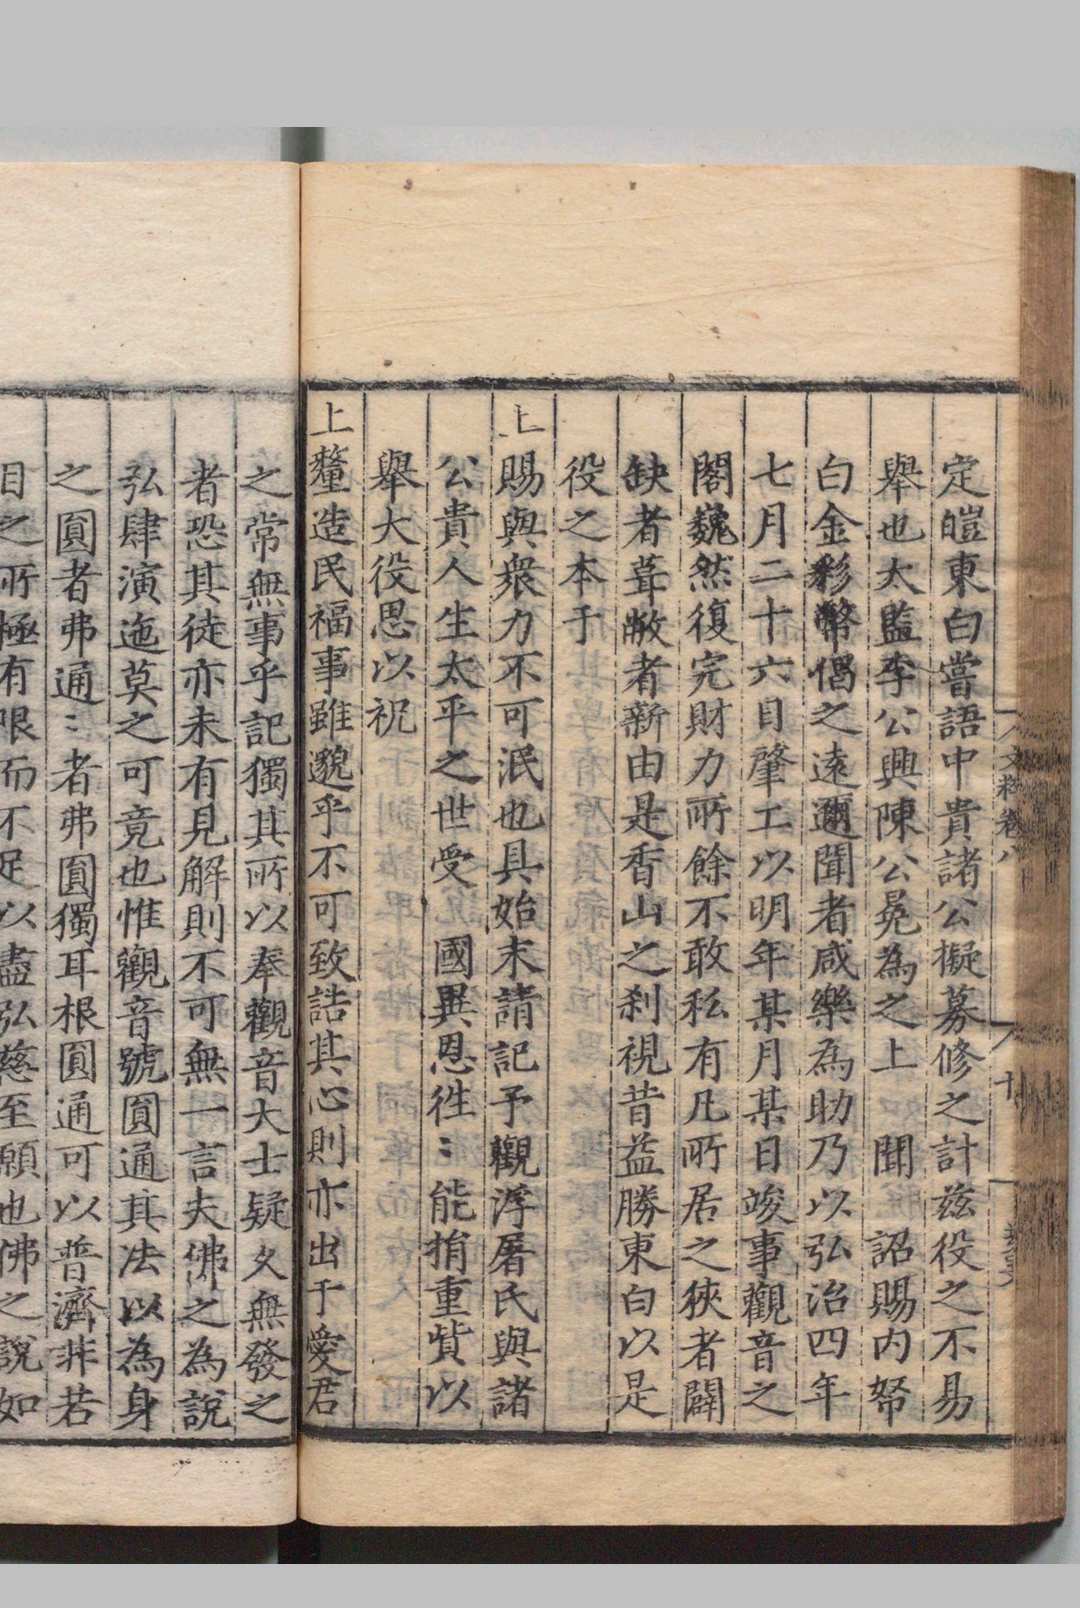 定皚東白嘗語中貴諸公擬募修之計茲役之不易
舉也太監李公興陳公晃為之上 聞 詔賜内帑
白金彩幣倡之遠邇聞者咸樂為助乃以弘治四年
七月二十六日肇工以明年某月某日竣事觀音之
閣巍然復完財力所餘不敢私有凡所居之狹者闢
缺者葺敝者新由是香山之刹視昔益勝東白以是
役之本于
上賜與衆力不可泯也具始末請記予觀浮屠氏與諸
公貴人生太平之世受 國異恩徃〻能捐重貲以
舉大役思以祝
上釐造民福事雖邈乎不可致詰其心則亦出于愛君
之常無事乎記獨其所以奉觀音大士疑久無發之
者恐其徒亦未有見解則不可無一言夫佛之為說
弘肆演迤莫之可竟也惟觀音號圓通其法以為身
之圓者弗通〻者弗圓獨耳根圓通可以普濟非若
目之所極有限而不足以盡弘慈至願也佛之說如
文粹卷八
廿